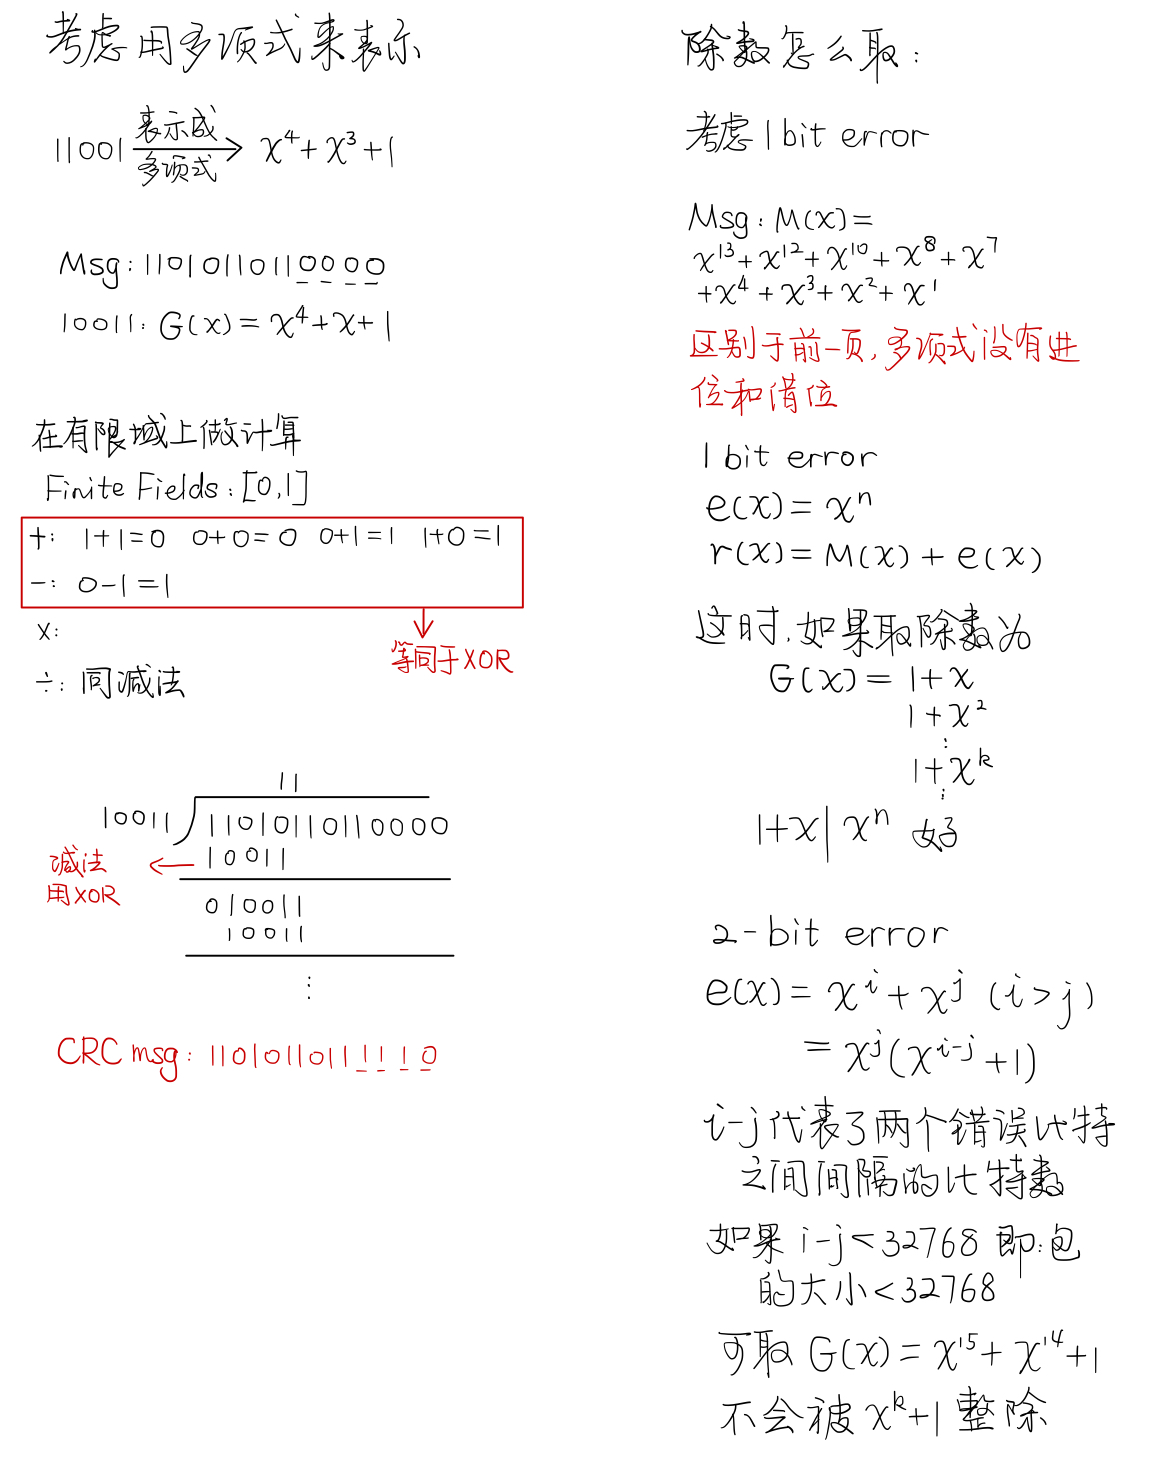 考虑用多项式来表示
11001 表示成多项式→ x⁴+x³+1
Msg: 11010110110000
10011: G(x)= x⁴+x+1
在有限域上做计算
Finite Fields: [0,1]
+: 1+1=0 0+0=0 0+1=1 1+0=1
-: 0-1=1
x:
等同于XOR
÷: 同减法
11
10011 11010110110000
减法
用XOR
← 10011
010011
10011
⋮
CRC msg: 11010110111110
除数怎么取:
考虑1bit error
Msg: M(x)=
x¹³+x¹²+x¹⁰+x⁸+x⁷
+x⁴+x³+x²+x¹
区别于前一页,多项式没有进
位和借位
1 bit error
e(x)= xⁿ
r(x)= M(x)+e(x)
这时,如果取除数为
G(x)= 1+x
1+x²
⋮
1+xᵏ
⋮
1+x| xⁿ 好
2-bit error
e(x)= xⁱ+xʲ (i>j)
= xʲ(xⁱ⁻ʲ+1)
i-j代表了两个错误比特
之间间隔的比特数
如果 i-j<32768 即:包
的大小<32768
可取 G(x)= x¹⁵+x¹⁴+1
不会被 xᵏ+1 整除